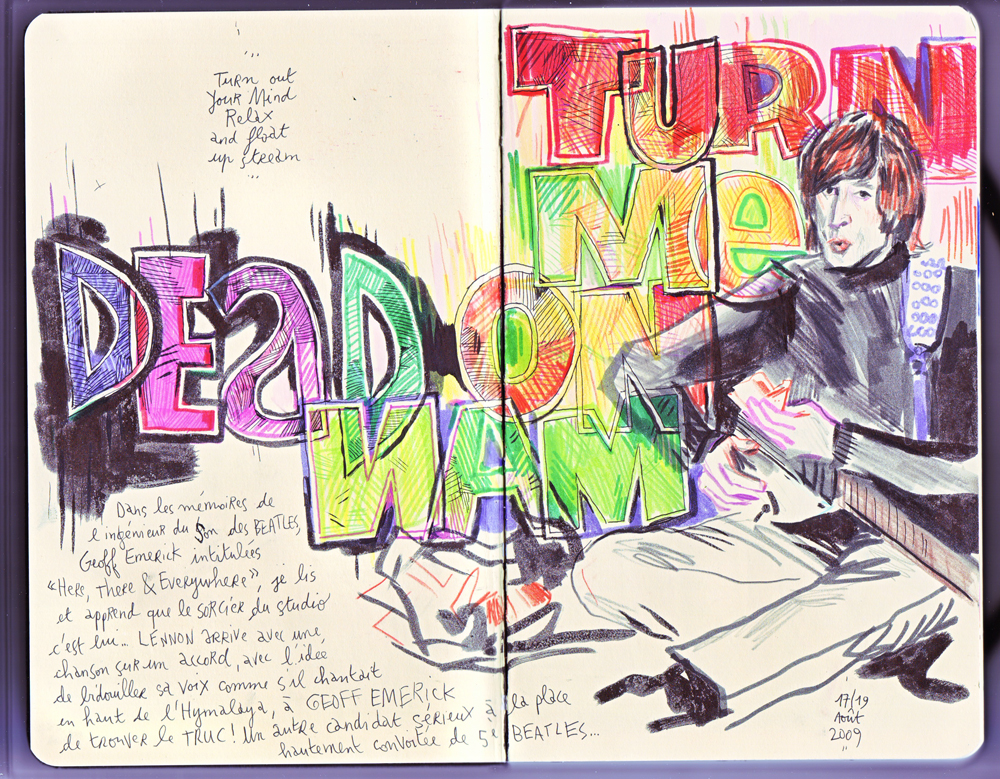 Turn out
Your Mind
Relax
and float
up stream
TURN
Me
ON
DESD
NAM
Dans les mémoires de
l'ingénieur du Son des BEATLES
Geoff Emerick intitulées
"Here, There & Everywhere", je lis
et apprend que le SORCIER du studio
c'est lui... LENNON ARRIVE AVEC UNE
chanson sur un accord, avec l'idée
de bidouiller sa voix comme s'il chantait
en haut de l'Hymalaya, à GEOFF EMERICK
de TROUVER le TRUC! Un autre candidat sérieux à la place
hautement convoitée de 5e BEATLES...
17/19
Août
2009